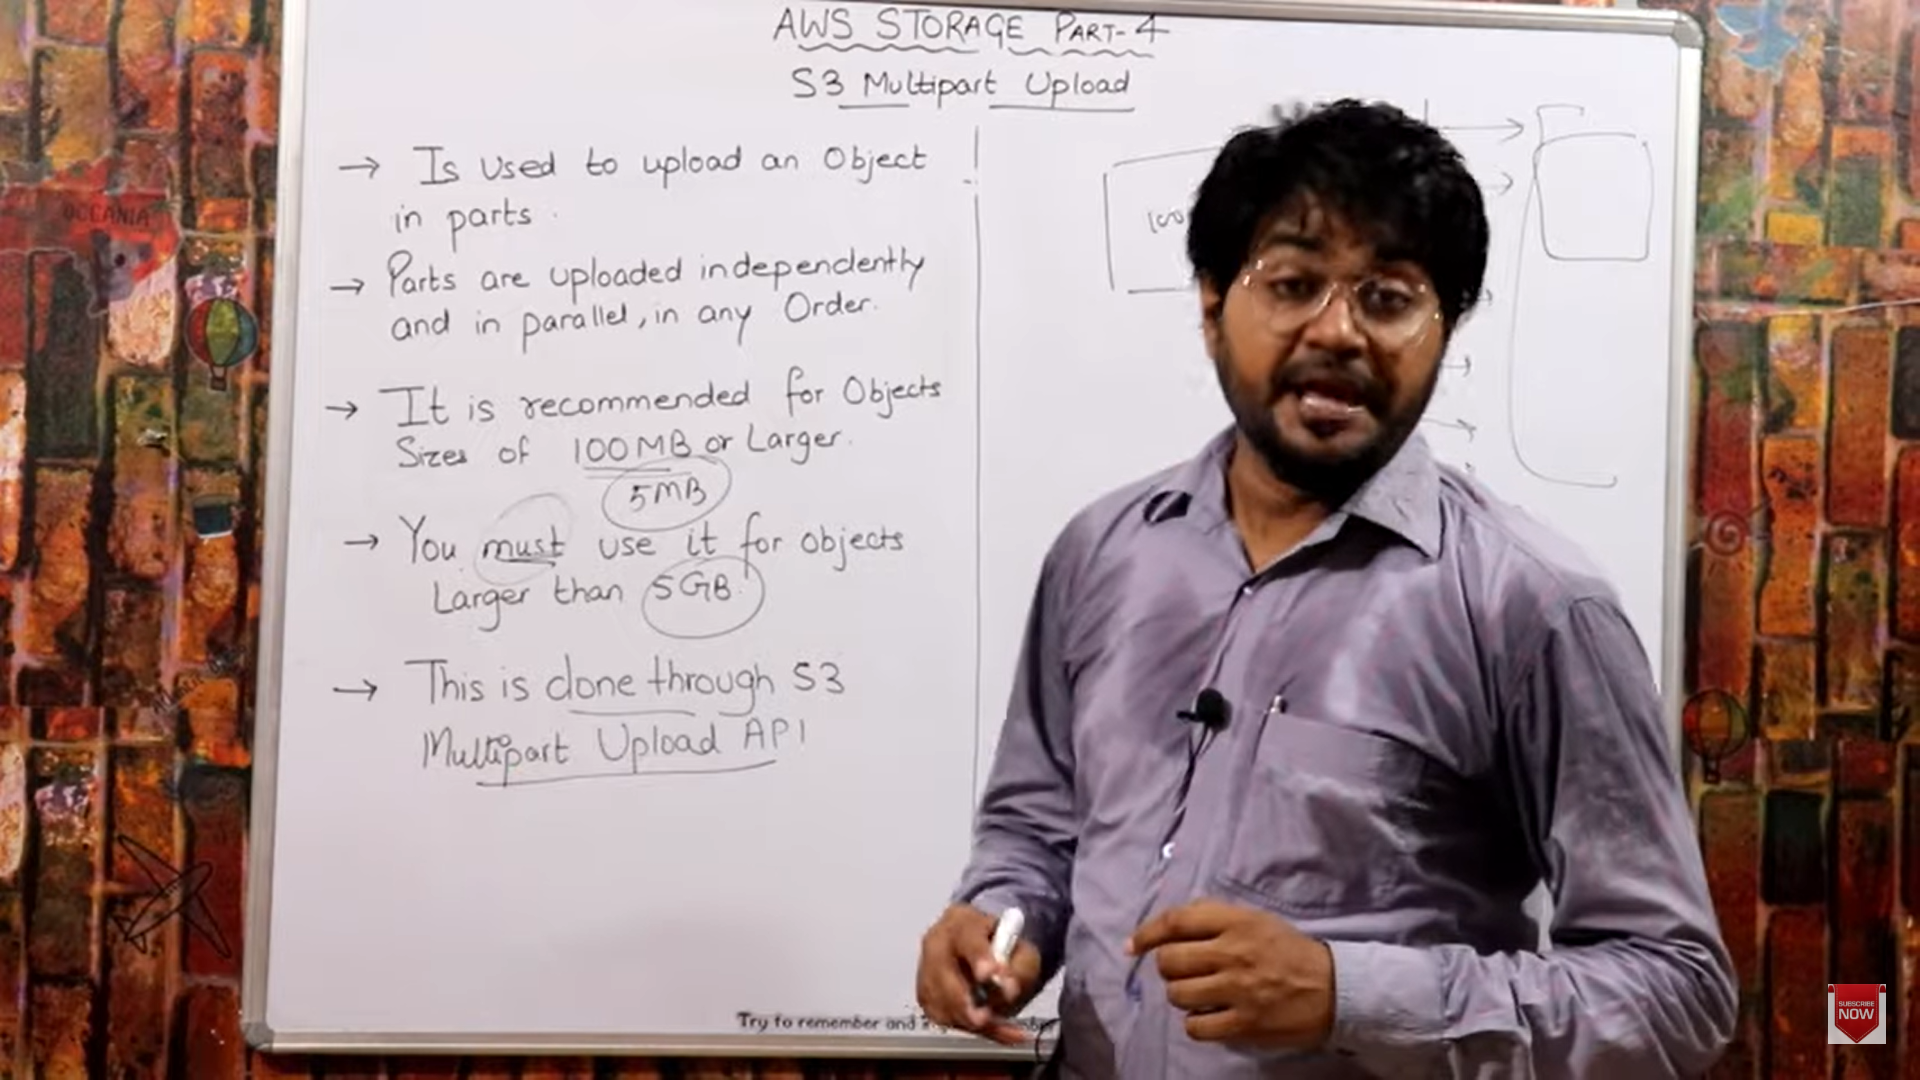 AWS STORAGE PART-4
S3 Multipart Upload
→ Is used to upload an Object
in parts.
→ Parts are uploaded independently
and in parallel, in any Order.
→ It is recommended for Objects
Sizes of 100MB or Larger.
5MB
→ You must use it for objects
Larger than 5GB.
→ This is done through S3
Multipart Upload API
100
OCEANIA
Try to remember and
SUBSCRIBE
NOW